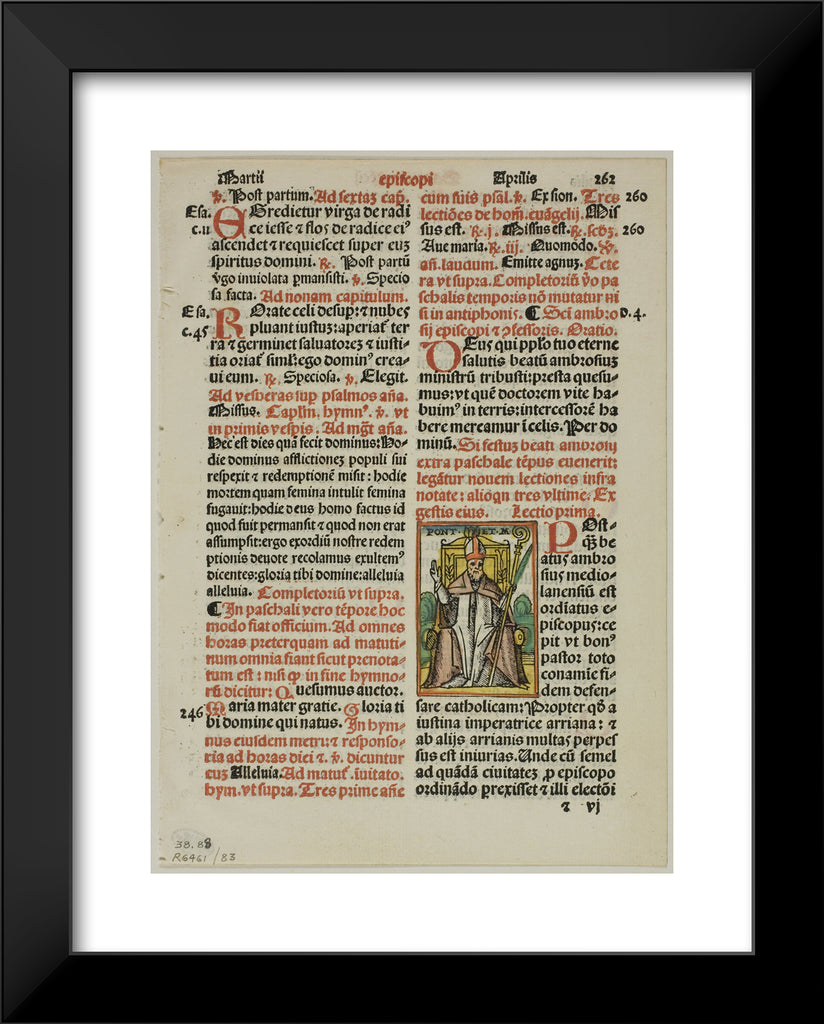 Martii episcopi Aprilis 262
℟. Post partum. Ad sextaʒ cap̄.
Esa. EGredietur virga de radi
c.11 ce iesse ⁊ flos de radice eiꝰ
ascendet ⁊ requiescet super euʒ
spiritus domini. ℟. Post partū
v̄go inuiolata ꝑmansisti. ℣. Specio
sa facta. Ad nonam capitulum.
Esa. ROrate celi desuꝑ: ⁊ nubes
c.45 pluant iustuʒ: aperiat̄ ter
ra ⁊ germinet saluatoreʒ ⁊ iusti-
tia oriat̄ siml̄: ego dominꝰ crea-
ui eum. ℟. Speciosa. ℣. Elegit.
Ad vesperas sup psalmos aña.
Missus. Capl̄m. hymnꝰ. ℣. vt
in primis vesp̄is. Ad mḡt aña.
Hec est dies quā fecit dominus: Ho-
die dominus afflictioneʒ populi sui
respexit ⁊ redemptionē misit: hodie
mortem quam femina intulit femina
fugauit: hodie deus homo factus id
quod fuit permansit ⁊ quod non erat
assumpsit: ergo exordiū nostre redem
ptionis deuote recolamus exultemꝰ
dicentes: gloria tibi domine: alleluia
alleluia. Completoriū vt supra.
¶ In paschali vero tēpore hoc
modo fiat officium. Ad omnes
horas preterquam ad matuti-
num omnia fiant sicut prenota-
tum est: nisi ꝙ in fine hymno-
rū dicitur: Quesumus auctor.
246 Maria mater gratie. Gloria ti
bi domine qui natus. In hym-
nus eiusdem metri: ⁊ responso-
ria ad horas diei ⁊. ℣. dicuntur
cuʒ Alleluia. Ad matut̄. iuitato.
hym. vt supra. Tres prime añe
cum suis psal. ℣. Ex sion. Tres 260
lectiōes de hom̄. euāgelij. Mis
sus est. ℟. j. Missus est. ℟. scd̄ʒ. 260
Aue maria. ℟. iij. Quomodo. ℣.
añ. laudum. Emitte agnuʒ. Cete
ra vt supra. Completoriū v̄o pa
schalis temporis nō mutatur ni
si in antiphonis. ¶ Sci ambro D.4.
sij episcopi ⁊ ꝯfessoris. Oratio.
DEus qui pp̄lo tuo eterne
salutis beatū ambrosiuʒ
ministrū tribuisti: presta quesu-
mus: vt quē doctorem vite ha-
buimꝰ in terris: intercessorē ha
bere mereamur ī celis. Per do
minū. Si festuʒ beati ambrosij
extra paschale tēpus euenerit:
legātur nouem lectiones infra
notate: alioq̄n tres vltime. Ex
gestis eius. Lectio prima.
PONT ET M
POst-
q̄ʒ be
atus ambro
sius medio-
lanensiū est
ordiatus e-
piscopus: ce
pit vt bonꝰ
pastor toto
conamīe fi-
dem defen-
sare catholicam: Propter qd̄ a
iustina imperatrice arriana: ⁊
ab alijs arrianis multas perpes
sus est iniurias. Unde cū semel
ad quādā ciuitateʒ ꝓ episcopo
ordināndo ꝑrexisset ⁊ illi electōi
⁊ vj
38.88
R6461/83